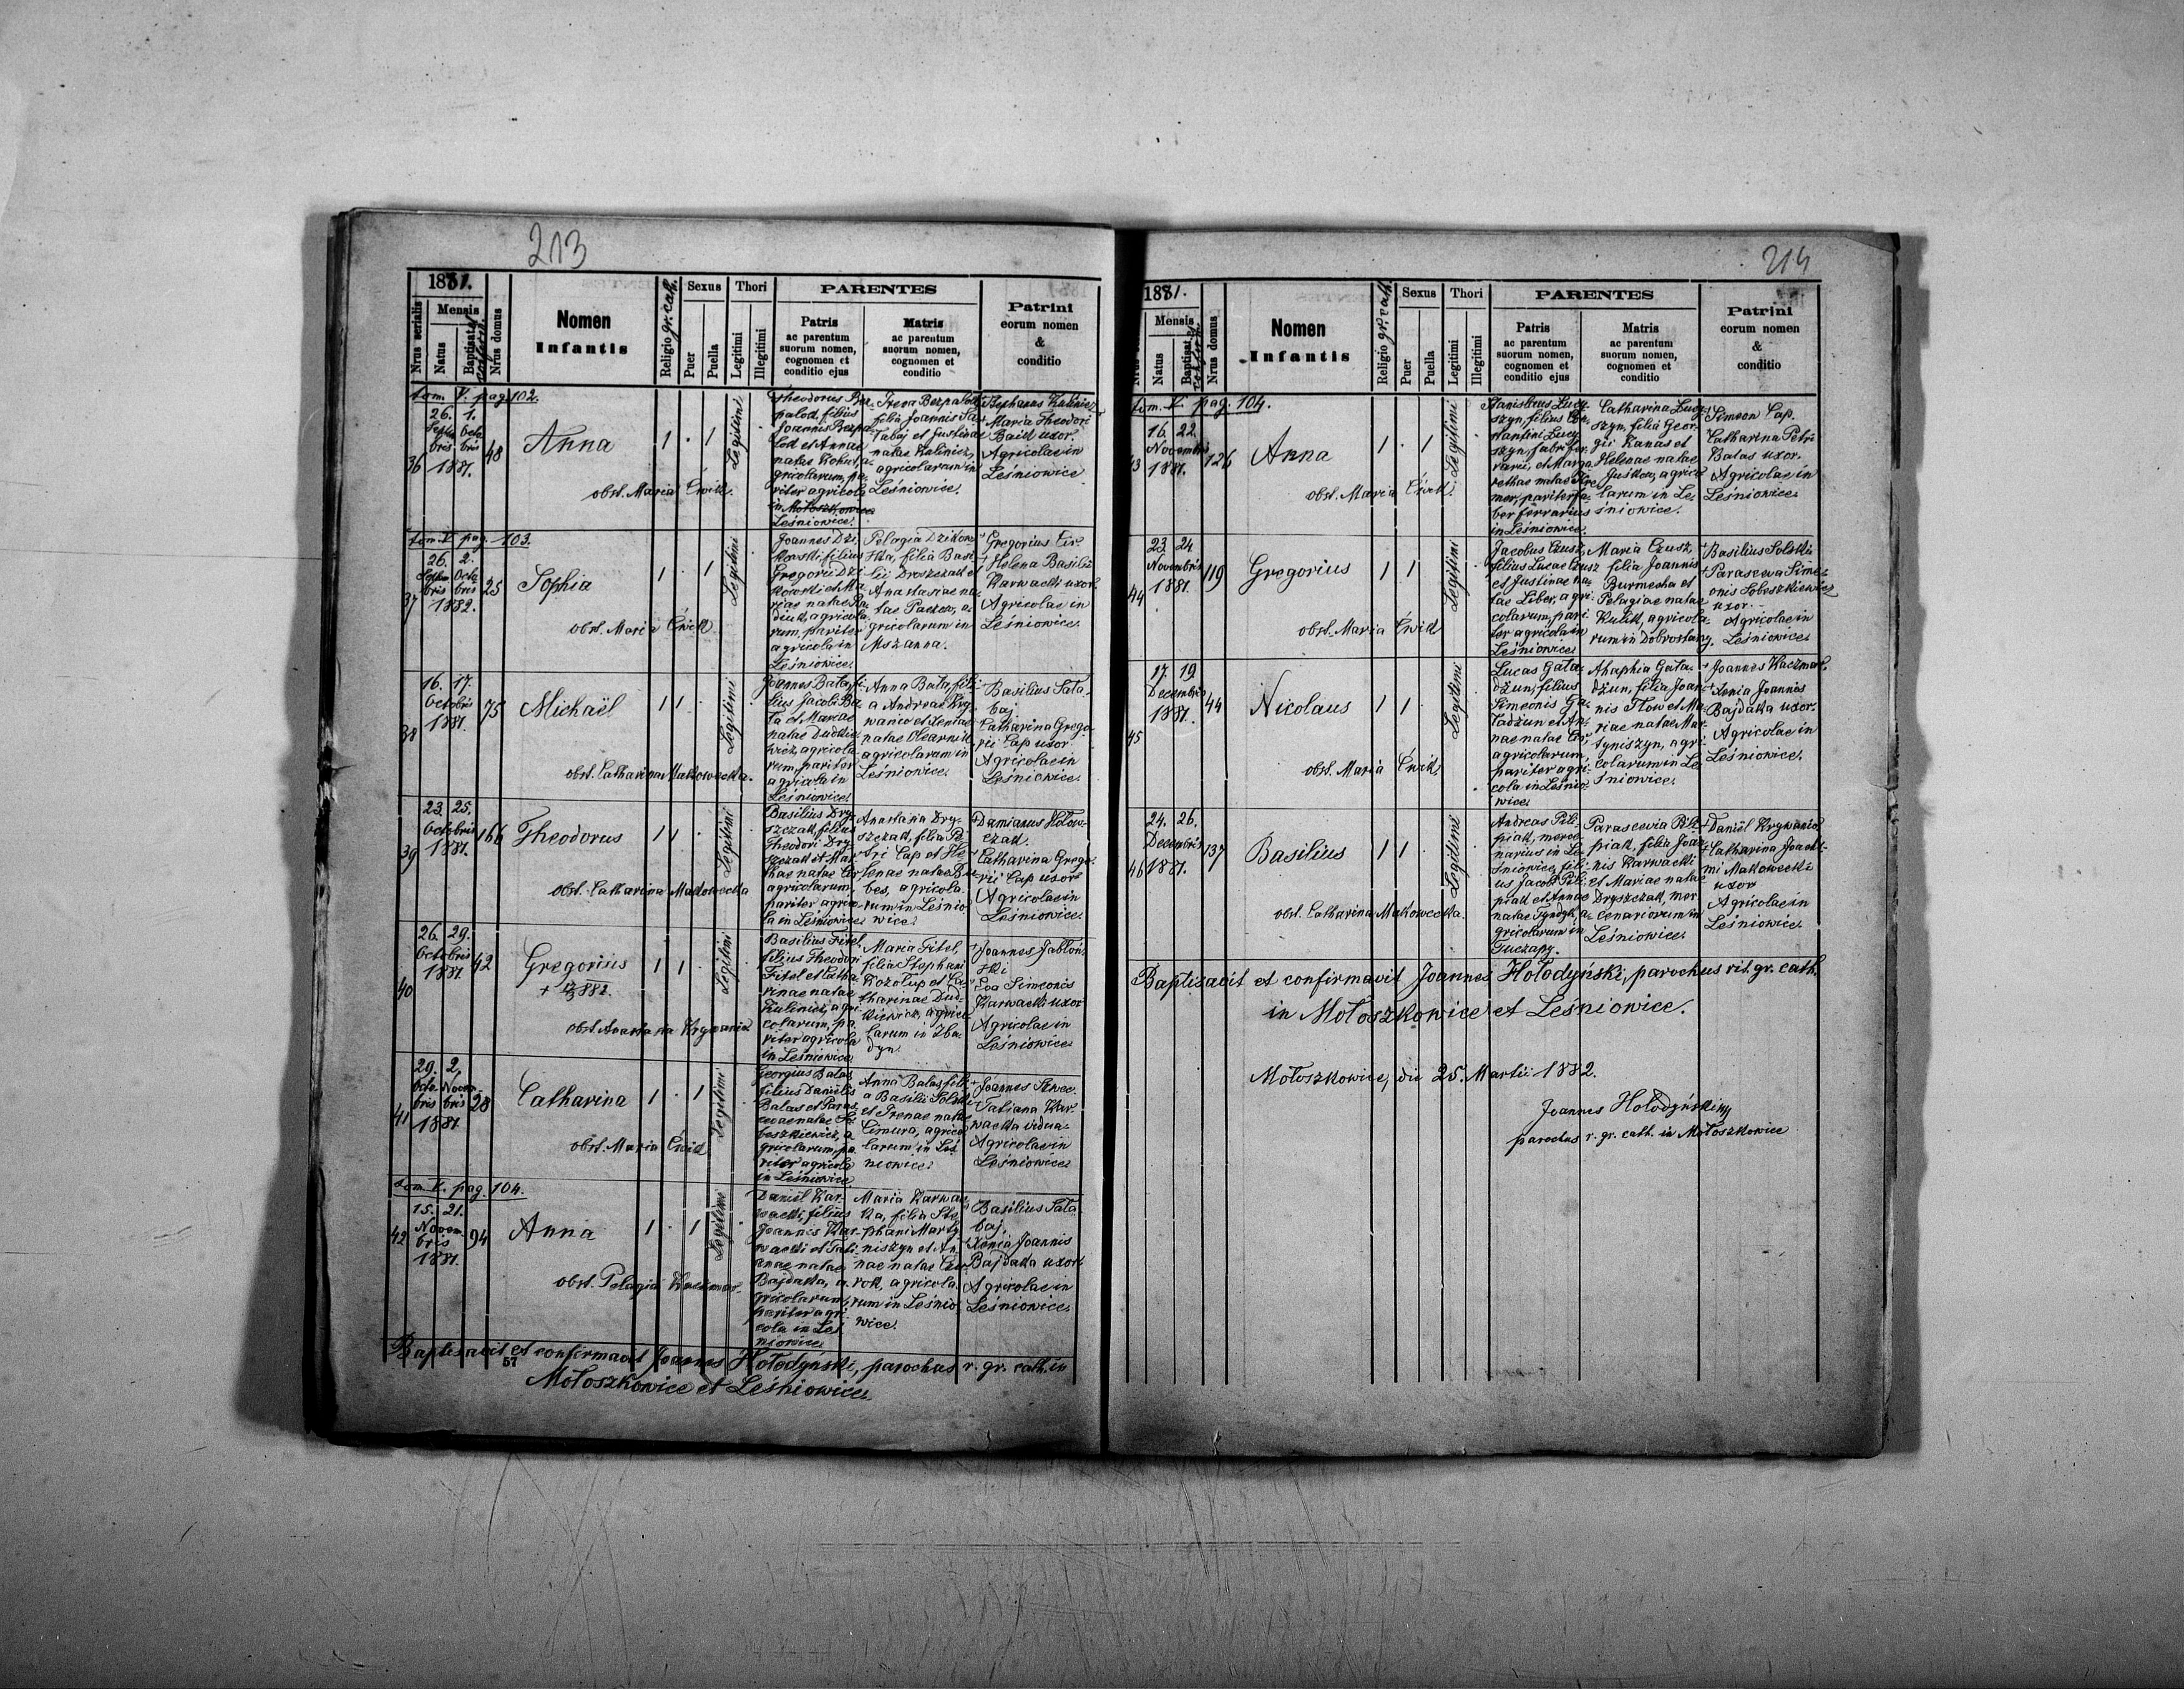 213
1881.
Nrus serialis
Mensis
Natus
Baptisatus
Nrus domus
Nomen
Infantis
Religio gr. cath.
Sexus
Puer
Puella
Thori
Legitimi
Illegitimi
PARENTES
Patris
ac parentum
suorum nomen,
cognomen et
conditio ejus
Matris
ac parentum
suorum nomen,
cognomen et
conditio
Patrini
eorum nomen
&
conditio
tom. V. pag. 102.
36
26. 1.
Septem Octo
bris bris
1881.
48
Anna
1 . 1
Legitimi
obst. Maria Ćwik.
Theodorus Bez-
palod, filius
Joannis Bezpa-
lod et Annae
natae Kohut, a-
gricolarum, pa-
riter agricola
in Mołoszkowice
Leśniowice.
Irena Bezpalod
filia Joannis
et Justinae
natae Kulinicz,
agricolarum in
Leśniowice.
Stephanus Kulinicz
Maria Theodori
Baid uxor.
Agricolae in
Leśniowice
tom. V. pag. 103.
37
26. 2.
Septem Octo
bris bris
1882.
25
Sophia
1 . 1
Legitimi
obst. Maria Ćwik
Joannes Dzi-
kowski, filius
Gregorii Dzi-
kowski et Ma-
riae natae
agricola-
rum, pariter
agricola in
Leśniowice
Pelagia Dzikow-
ska, filia Basi-
lii Droszczak et
Anastasiae na-
tae a-
gricolarum in
Mszanna.
Gregorius Cir.
Helena Basilii
Karwacki uxor
Agricolae in
Leśniowice
38
16. 17.
Octobris
1881.
75
Michaël
1 1 .
Legitimi
obst. Catharina Makowecka.
Joannes Bata, fi-
lius Jacobi Ba-
ta et Mariae
natae Dudkie-
wicz, agricola-
rum, pariter
agricola in
Leśniowice
Anna Bata, fili-
a Andreae Kry-
wanio et Xeniae
natae Olearnik
agricolarum in
Leśniowice
Basilius Sata-
baj
Catharina Grego-
rii Cap uxor
Agricolae in
Leśniowice
39
23. 25.
Octobris
1881.
166
Theodorus
1 1 .
Legitimi
obst. Catharina Makowecka
Basilius Dry-
szczak, filius
Theodori Dry-
szczak et Mar-
thae natae Cir
agricolarum,
pariter agrico-
la in Leśniowice
Anastasia Dry-
szczak, filia Pe-
tri Cap et He-
lenae natae
agricola-
rum in Leśnio-
wice
Damianus Hołow-
czak.
Catharina Grego-
rii Cap uxor
Agricolae in
Leśniowice
40
26. 29.
Octobris
1881.
42
Gregorius
1 1
Legitimi
obst. Anastasia Krywanio
Basilius Fitel,
filius Theodori
Fitel et Catha-
rinae natae
Kulinicz, agri-
colarum, pa-
riter agricola
in Leśniowice
Maria Fitel,
filia Stephani
Kozołup et Ca-
tharinae Dud-
kiewicz, agrico-
larum in Zba-
dyn
Joannes Jabłoń-
ski
Eva Simeonis
Karwacki uxor
Agricolae in
Leśniowice
41
29. 2.
Octo Novem
bris bris
1881.
28
Catharina
1 . 1
Legitimi
obst. Maria Ćwik
Georgius Balas
filius Danielis
Balas et Paras-
cevae natae So-
beszkiewicz, a-
gricolarum, pa-
riter agricola
in Leśniowice
Anna Balas, fili-
a Basilii Solski
et Irenae natae
Cimura, agrico-
larum in Leś-
niowice
Joannes Szwec.
Tatiana Kar-
wacka vidua.
Agricolae in
Leśniowice
tom. V. pag. 104.
42
15. 21.
Novem-
bris
1881.
94
Anna
1 . 1
Legitimi
obst. Pelagia Kaczmar.
Daniël Kar-
wacki, filius
Joannis Kar-
wacki et Tati-
anae natae
Bajdaka, a-
gricolarum,
pariter agri-
cola in Leś-
niowice
Maria Karwac-
ka, filia Ste-
phani Marty-
niszyn et An-
nae natae
agricola-
rum in Leśnio-
wice.
Basilius Sata-
baj.
Xenia Joannis
Bajdaka uxor
Agricolae in
Leśniowice
Baptisavit et confirmavit Joannes Hołodyński, parochus r. gr. cath. in
57
Mołoszkowice et Leśniowice
214
1881.
Mensis
Natus
Baptisat
Nrus domus
Nomen
Infantis
Religio gr. cath.
Sexus
Puer
Puella
Thori
Legitimi
Illegitimi
PARENTES
Patris
ac parentum
suorum nomen,
cognomen et
conditio ejus
Matris
ac parentum
suorum nomen,
cognomen et
conditio
Patrini
eorum nomen
&
conditio
tom. V. pag. 104.
43
16. 22.
Novembris
1881.
126
Anna
1 . 1
Legitimi
obst. Maria Ćwik.
Stanislaus Lucy-
szyn, filius Con-
stantini Lucy-
szyn, fabri fer-
rarii, et Marga-
rethae natae Kre-
mer, pariter fa-
ber ferrarius
in Leśniowice
Catharina Lucy-
szyn, filia Geor-
gii Kanas et
Helenae natae
Juskow, agrico-
larum in Le-
śniowice.
Simeon Cap.
Catharina Petri
Balas uxor.
Agricolae in
Leśniowice
44
23. 24
Novembris
1881.
119
Gregorius
1 1
Legitimi
obst. Maria Ćwik
Jacobus Czusz,
filius Lucae Czusz
et Justinae na-
tae Liber, agri-
colarum, pari-
ter agricola in
Leśniowice
Maria Czusz,
filia Joannis
Burmecha et
Pelagiae natae
Kulik, agricola-
rum in Dobrostany.
Basilius Solski
Parasceva Sime-
onis Sobeszkiewicz
uxor.
Agricolae in
Leśniowice
45
17. 19
Decembris
1881.
44
Nicolaus
1 1 .
Legitimi
obst. Maria Ćwik.
Lucas Gała-
dżun, filius
Simeonis Ga-
ładżun et An-
nae natae Cir,
agricolarum,
pariter agri-
cola in Leśnio-
wice
Ahaphia Gała-
dżun, filia Joan-
nis Tłow et Ma-
riae natae Mar-
tyniszyn, agri-
colarum in Le-
śniowice.
Joannes Kaczmar.
Xenia Joannis
Bajdaka uxor.
Agricolae in
Leśniowice.
46
24. 26.
Decembris
1881.
137
Basilius
1 1
Legitimi
obst. Catharina Makowecka.
Andreas Pili-
piak, merce-
narius in Le-
śniowice, fili-
us Jacobi Pili-
piak et Annae
natae Tyndyk, a-
gricolarum in
Tuczapy.
Parascevia Pili-
piak, filia Joan-
nis Karwacki
et Mariae natae
Dryszczak, mer-
cenariorum in
Leśniowice.
Daniël Krywanio
Catharina Joachi-
mi Makowecki
uxor
Agricolae in
Leśniowice.
Baptisavit et confirmavit Joannes Hołodyński, parochus rit. gr. cath.
in Mołoszkowice et Leśniowice.
Mołoszkowice, die 25. Martii 1882.
Joannes Hołodyński
parochus r. gr. cath. in Mołoszkowice